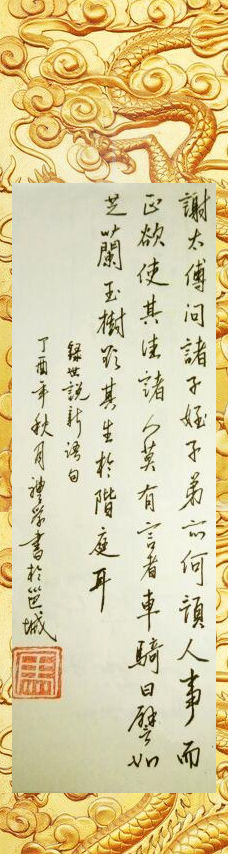 謝太傅问諸子姪子弟亦何預人事而
正欲使其佳諸人莫有言者車騎曰譬如
芝蘭玉樹欲其生於階庭耳
録世說新語句
丁酉年秋月禮書於邕城